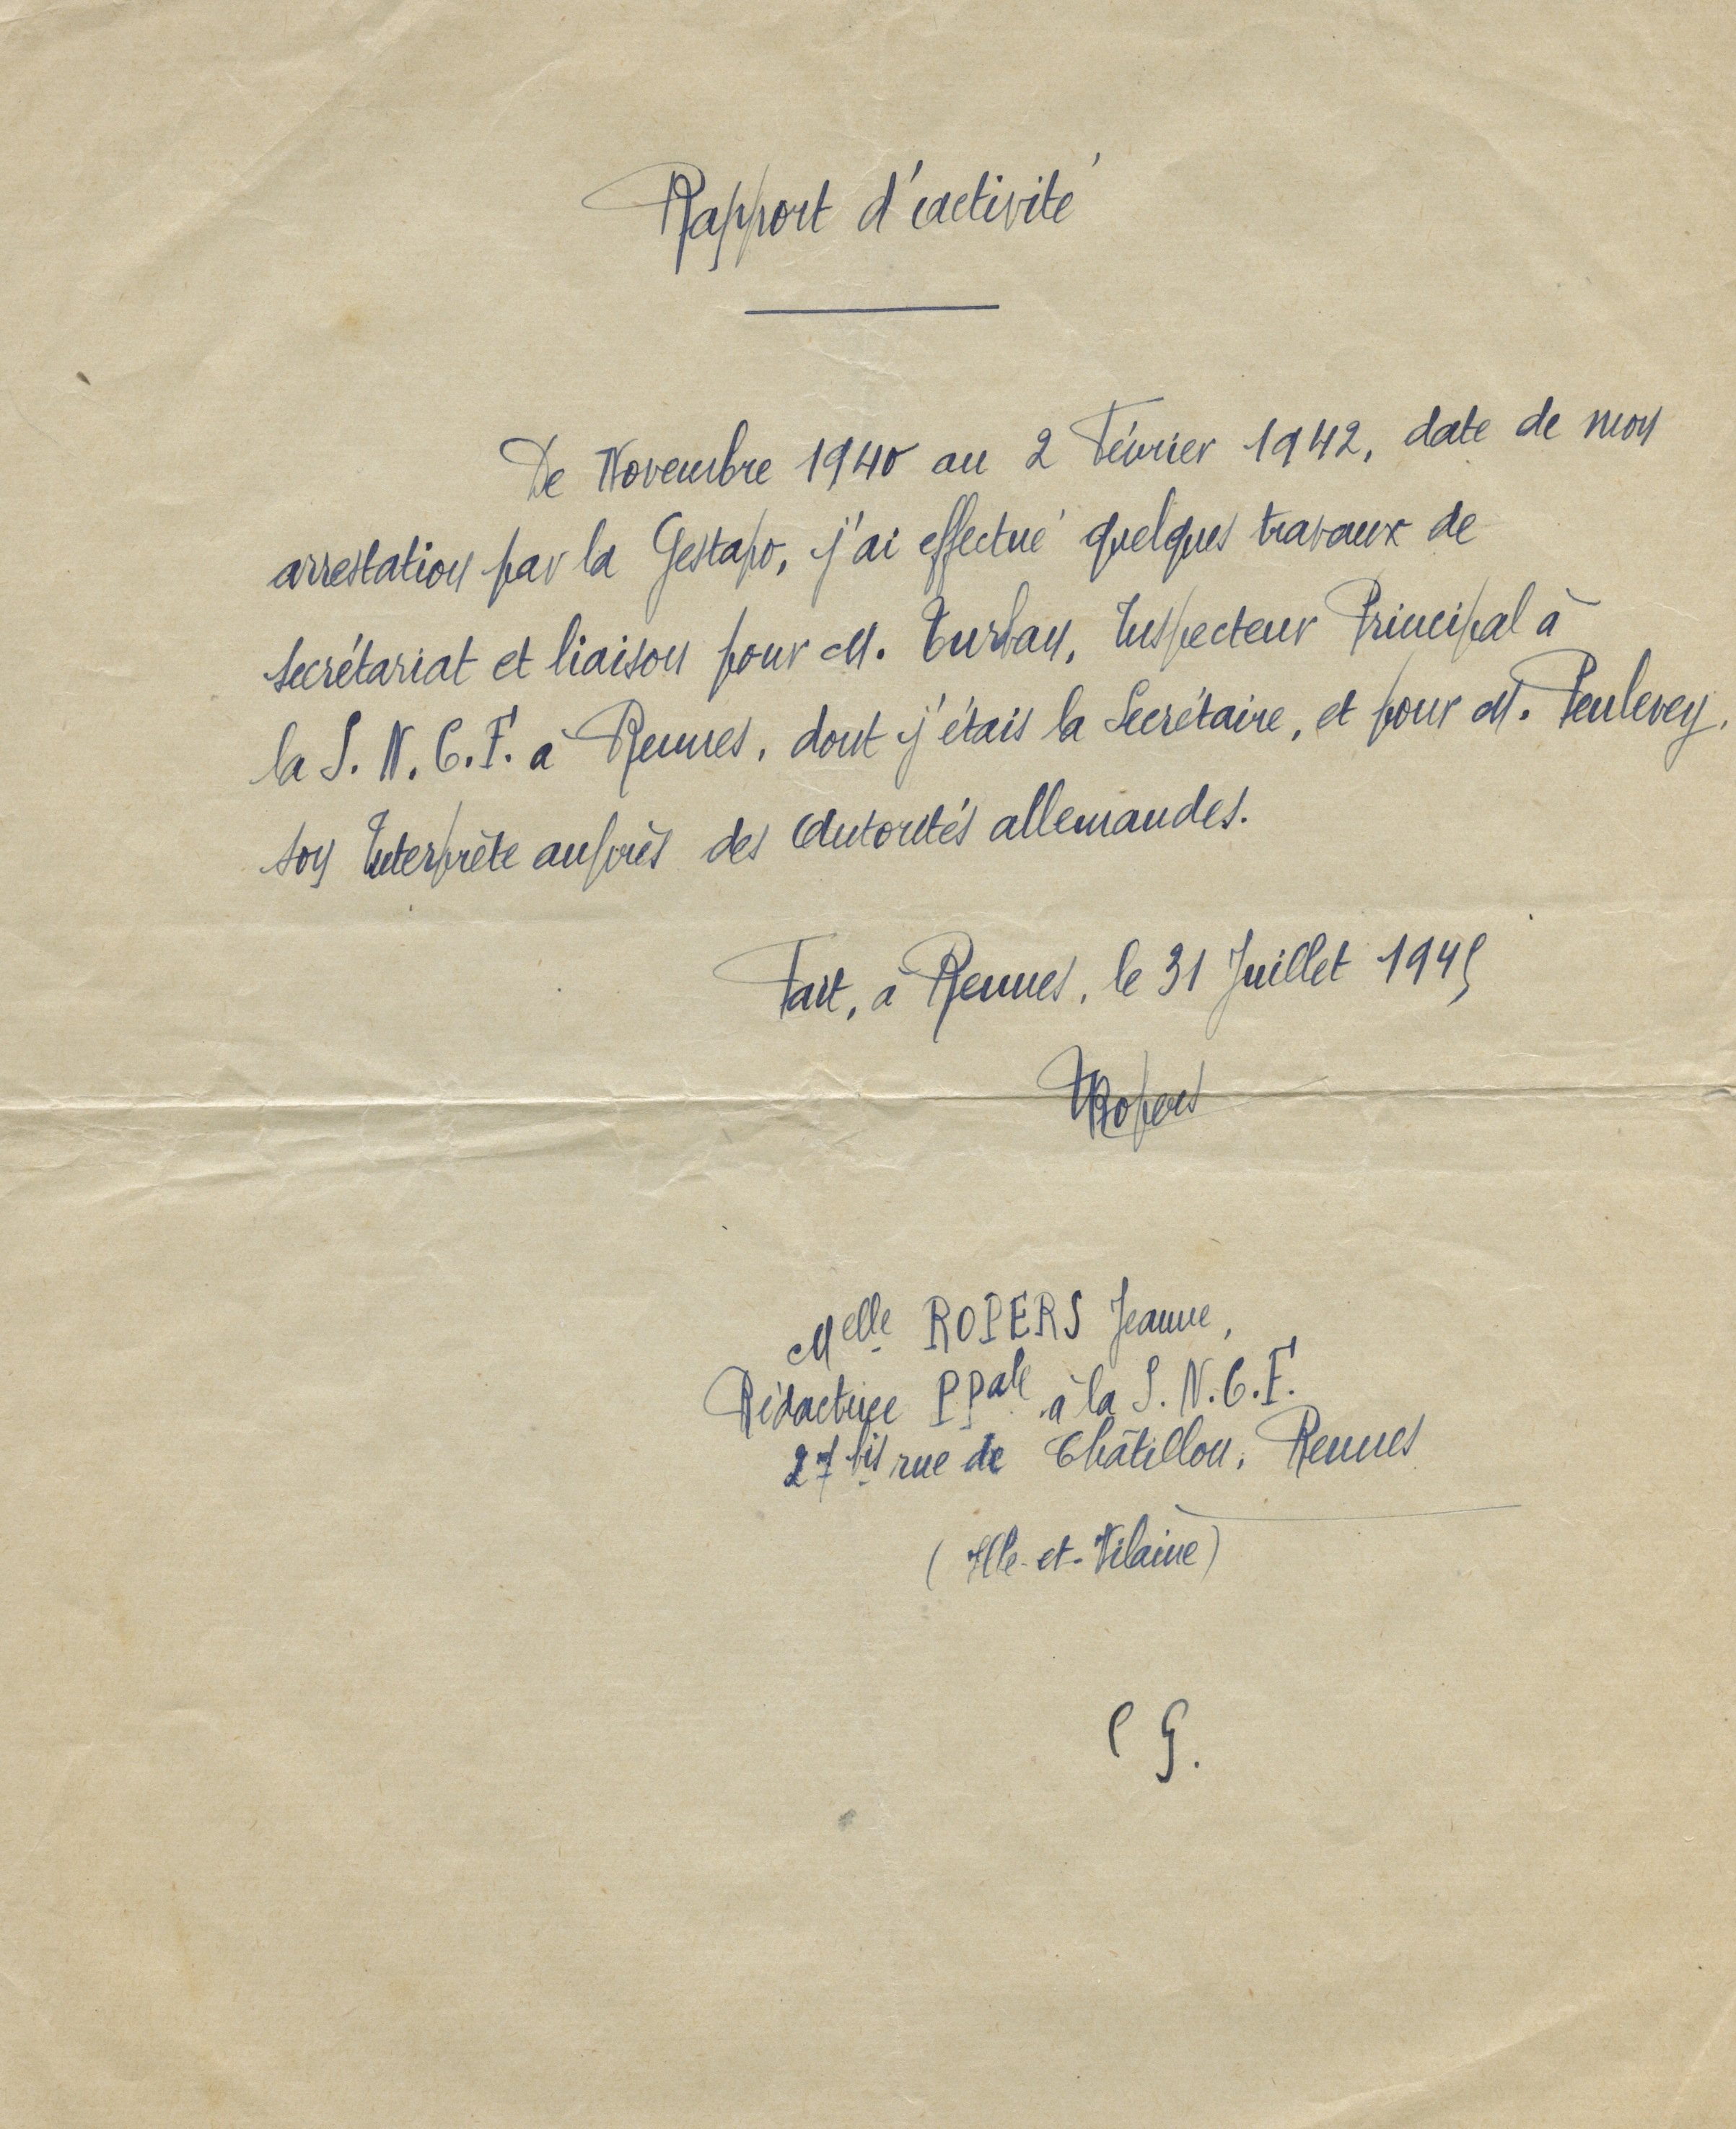 Rapport d'activité
De Novembre 1940 au 2 Février 1942, date de mon
arrestation par la Gestapo, j'ai effectué quelques travaux de
secrétariat et liaison pour M. Turban, Inspecteur Principal à
la S.N.C.F. à Rennes, dont j'étais la Secrétaire, et pour M. Peulevey,
son Interprète auprès des Autorités allemandes.
Fait, à Rennes, le 31 Juillet 1945
JRopers
Melle ROPERS Jeanne,
Rédactrice PPale à la S.N.C.F.
27 bis rue de Châtillon, Rennes
(Ille-et-Vilaine)
C G.